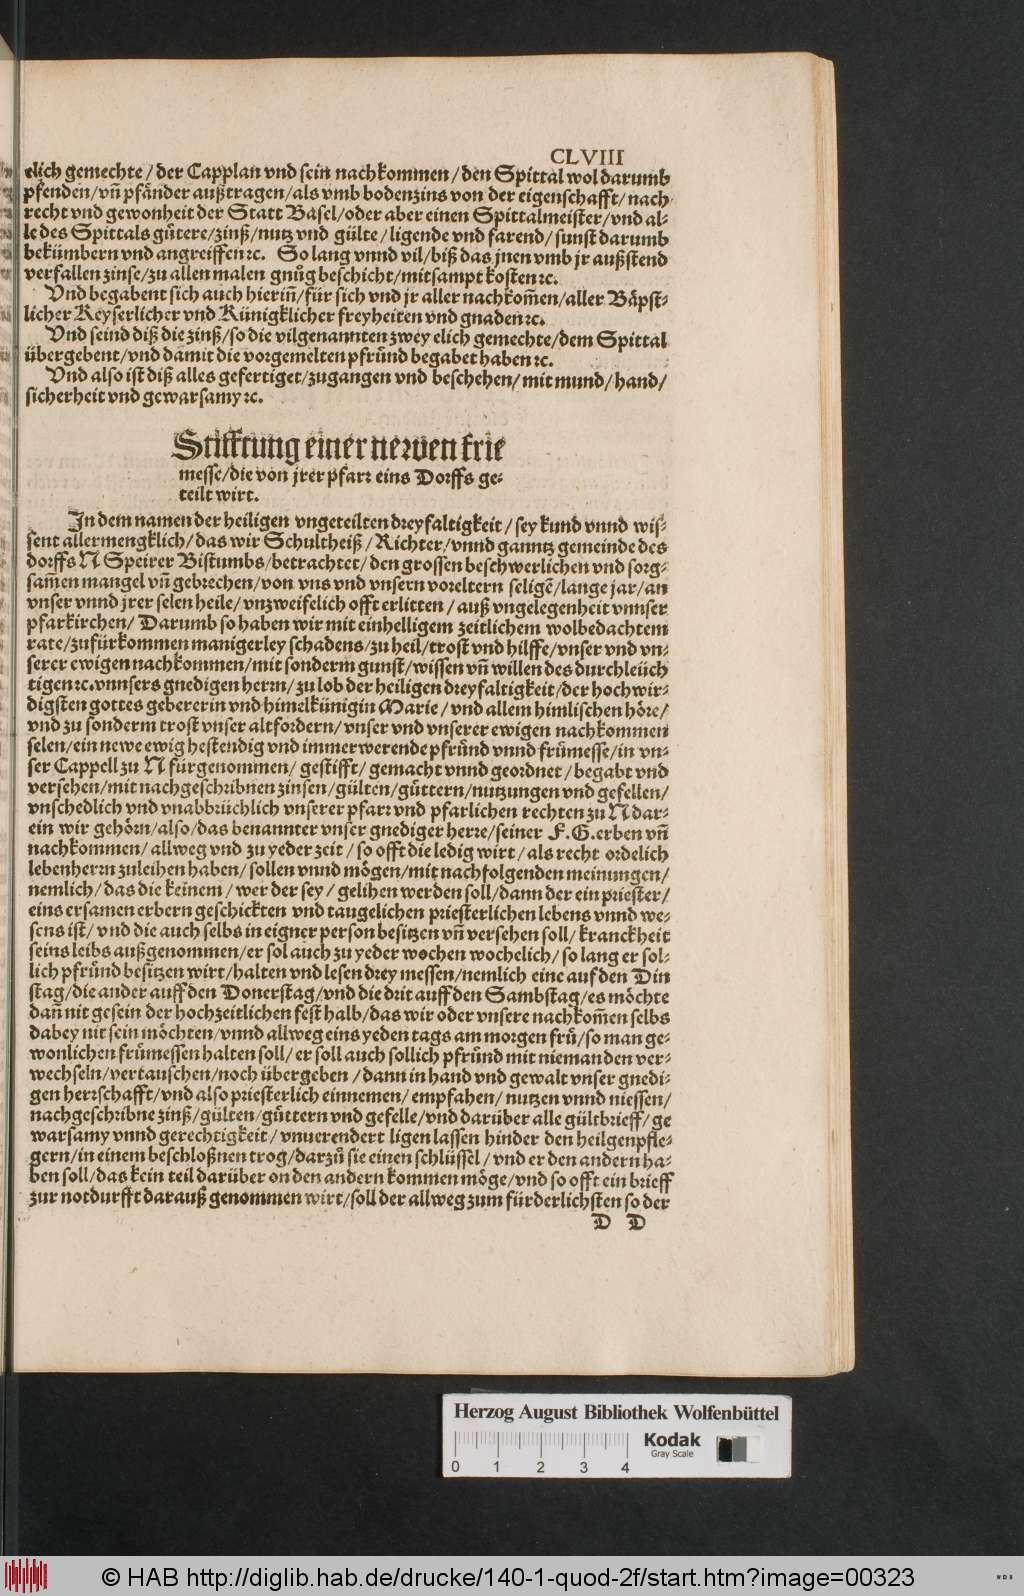 CLVIII
elich gemechte / der Capplan vnd sein nachkommen / den Spittal wol darumb
pfenden / vñ pfånder außtragen / als vmb bodenzins von der eigenschafft / nach
recht vnd gewonheit der Statt Basel / oder aber einen Spittalmeister / vnd al-
le des Spittals gůtere / zinß / nutz vnd gülte / ligende vnd farend / sunst darumb
bekümbern vnd angreiffen ⁊c. So lang vnnd vil / biß das jnen vmb jr außstend
verfallen zinse / zu allen malen gnůg beschicht / mitsampt kosten ⁊c.
Vnd begabent sich auch hieriñ / für sich vnd jr aller nachkom̃en / aller Båpst-
licher Keyserlicher vnd Künigklicher freyheiten vnd gnaden ⁊c.
Vnd seind diß die zinß / so die vilgenannten zwey elich gemechte / dem Spittal
übergebent / vnd damit die vorgemelten pfründ begabet haben ⁊c.
Vnd also ist diß alles gefertiget / zugangen vnd beschehen / mit mund / hand /
sicherheit vnd gewarsamy ⁊c.
Stifftung einer newen frie
messe / die von jrer pfarꝛ eins Dorffs ge-
teilt wirt.
In dem namen der heiligen vngeteilten dreyfaltigkeit / sey kund vnnd wis-
sent allermengklich / das wir Schultheiß / Richter / vnnd ganntz gemeinde des
dorffs N Speirer Bistumbs / betrachtet / den grossen beschwerlichen vnd sorg-
sam̃en mangel vñ gebrechen / von vns vnd vnsern voreltern seligẽ / lange jar / an
vnser vnnd jrer selen heile / vnzweifelich offt erlitten / auß vngelegenheit vnnser
pfarkirchen / Darumb so haben wir mit einhelligem zeitlichem wolbedachtem
rate / zufürkommen manigerley schadens / zu heil / trost vnd hilffe / vnser vnd vn-
serer ewigen nachkommen / mit sonderm gunst / wissen vñ willen des durchleüch
tigen ⁊c. vnnsers gnedigen herrn / zu lob der heiligen dreyfaltigkeit / der hochwir-
digsten gottes gebererin vnd himelkünigin Marie / vnd allem himlischen höre /
vnd zu sonderm trost vnser altfordern / vnser vnd vnserer ewigen nachkommen
selen / ein newe ewig hestendig vnd immerwerende pfründ vnnd frümesse / in vn-
ser Cappell zu N fürgenommen / gestifft / gemacht vnnd geordnet / begabt vnd
versehen / mit nachgeschribnen zinsen / gülten / güttern / nutzungen vnd gefellen /
vnschedlich vnd vnabbrüchlich vnserer pfarꝛ vnd pfarlichen rechten zu N dar-
ein wir gehörn / also / das benannter vnser gnediger herre / seiner F. G. erben vñ
nachkommen / allweg vnd zu yeder zeit / so offt die ledig wirt / als recht ordelich
lehenherrn zuleihen haben / sollen vnnd mögen / mit nachfolgenden meinungen /
nemlich / das die keinem / wer der sey / gelihen werden soll / dann der ein priester /
eins ersamen erbern geschickten vnd taugelichen priesterlichen lebens vnnd we-
sens ist / vnd die auch selbs in eigner person besitzen vñ versehen soll / kranckheit
seins leibs außgenommen / er sol auch zu yeder wochen wochelich / so lang er sol-
lich pfründ besitzen wirt / halten vnd lesen drey messen / nemlich eine auf den Din
stag / die ander auff den Donerstag / vnd die drit auff den Sambstag / es möchte
dañ nit gesein der hochzeitlichen fest halb / das wir oder vnsere nachkom̃en selbs
dabey nit sein möchten / vnnd allweg eins yeden tags am morgen frů / so man ge-
wonlichen frümessen halten soll / er soll auch sollich pfründ mit niemanden ver-
wechseln / vertauschen / noch übergeben / dann in hand vnd gewalt vnser gnedi-
gen herrschafft / vnd also priesterlich einnemen / empfahen / nutzen vnnd niessen /
nachgeschribne zinß / gülten / güttern vnd gefelle / vnd darüber alle gültbrieff / ge
warsamy vnnd gerechtigkeit / vnuerendert ligen lassen hinder den heilgenpfle-
gern / in einem beschloßnen trog / darzů sie einen schlüssel / vnd er den andern ha-
ben soll / das kein teil darüber on den andern kommen möge / vnd so offt ein brieff
zur notdurfft darauß genommen wirt / soll der allweg zum fürderlichsten so der
D D
Herzog August Bibliothek Wolfenbüttel
Kodak
Gray Scale
0 1 2 3 4
© HAB http://diglib.hab.de/drucke/140-1-quod-2f/start.htm?image=00323